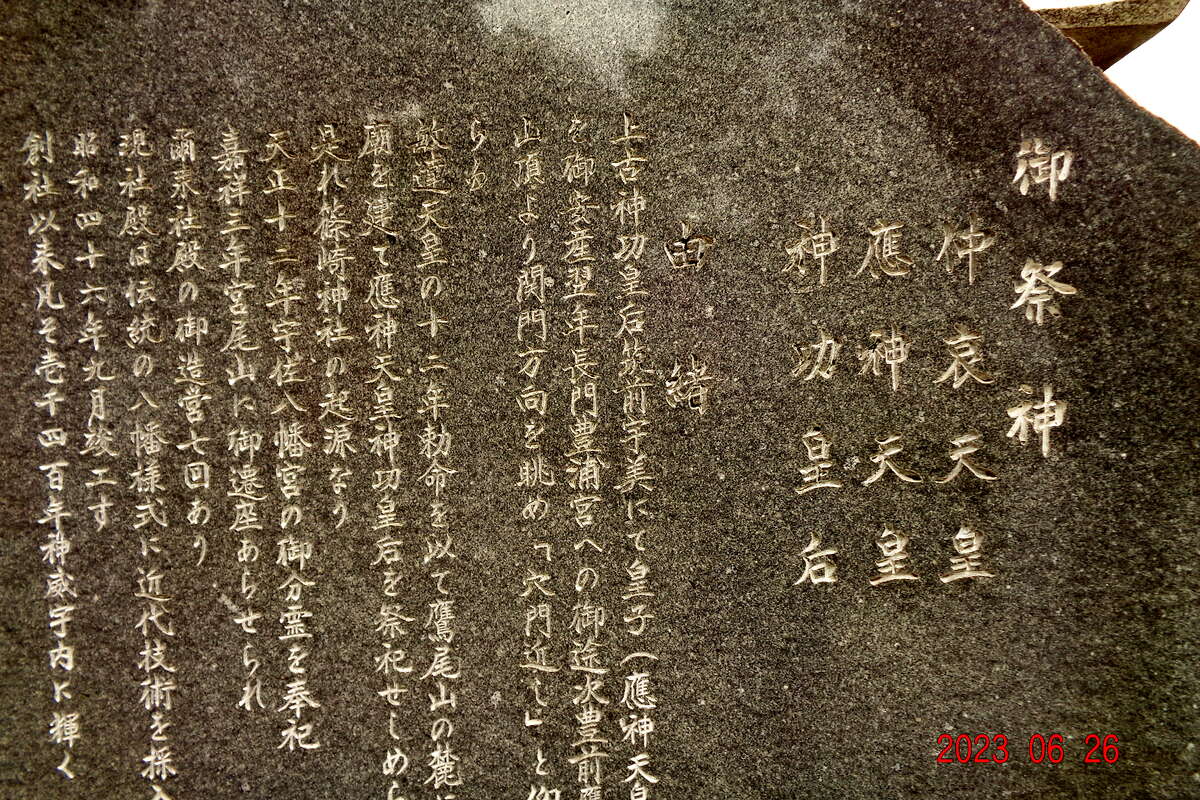 御祭神
仲哀天皇
應神天皇
神功皇后
由緒
上古神功皇后筑前宇美にて皇子(應神天皇
を御安産翌年長門豊浦宮への御途次豊前鷹
山頂より関門方向を眺め「穴門近し」と仰
らる
敏達天皇の十二年勅命を以て鷹尾山の麓に
廟を建て應神天皇神功皇后を祭祀せしめら
是れ篠崎神社の起源なり
天正十二年宇佐八幡宮の御分霊を奉祀
嘉祥三年宮尾山に御遷座あらせられ
爾来社殿の御造営七回あり
現社殿は伝統の八幡様式に近代技術を採入
昭和四十六年九月竣工す
創社以来凡そ壱千四百年神威宇内に輝く
2023 06 26